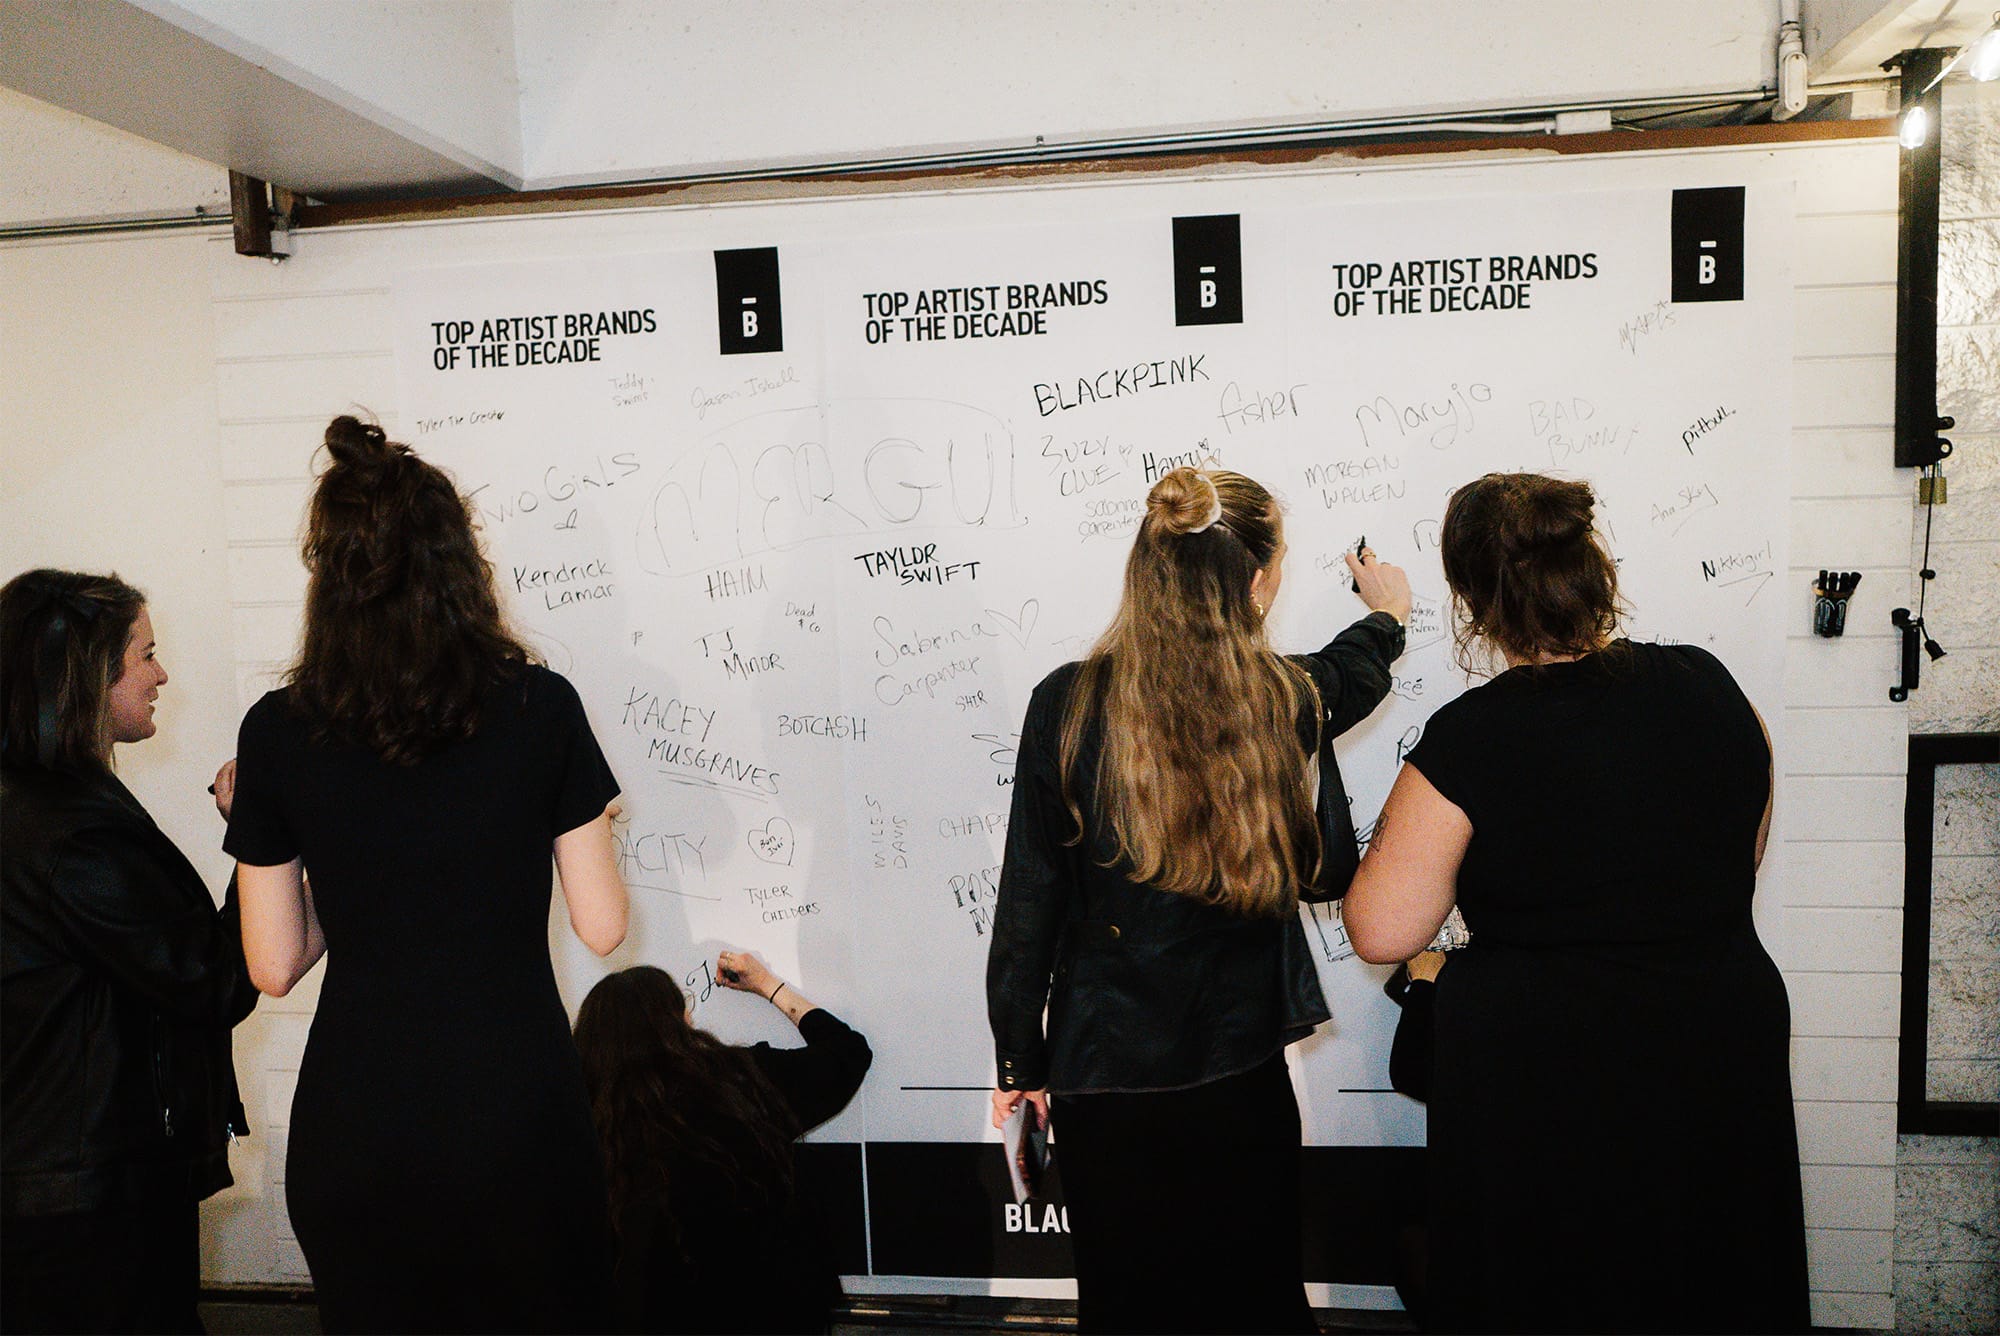 TOP ARTIST BRANDS
OF THE DECADE
B
Tyler The Creator
Teddy
Swims
Jason Isbell
TWO GIRLS
MERGUI
Kendrick
Lamar
HAIM
TJ
MINOR
Dead
& Co
KACEY
MUSGRAVES
BOTCASH
Bon
Iver
TYLER
CHILDERS
TOP ARTIST BRANDS
OF THE DECADE
B
BLACKPINK
SUZY
CLUE
Harry
Sabrina
Carpenter
TAYLOR
SWIFT
Sabrina
Carpenter
SHIR
MILES
DAVIS
CHAPP
POST
BLAC
TOP ARTIST BRANDS
OF THE DECADE
B
fisher
Maryjo
BAD
BUNNY
pitbull.
MORGAN
WALLEN
Ana Sky
Nikkigirl